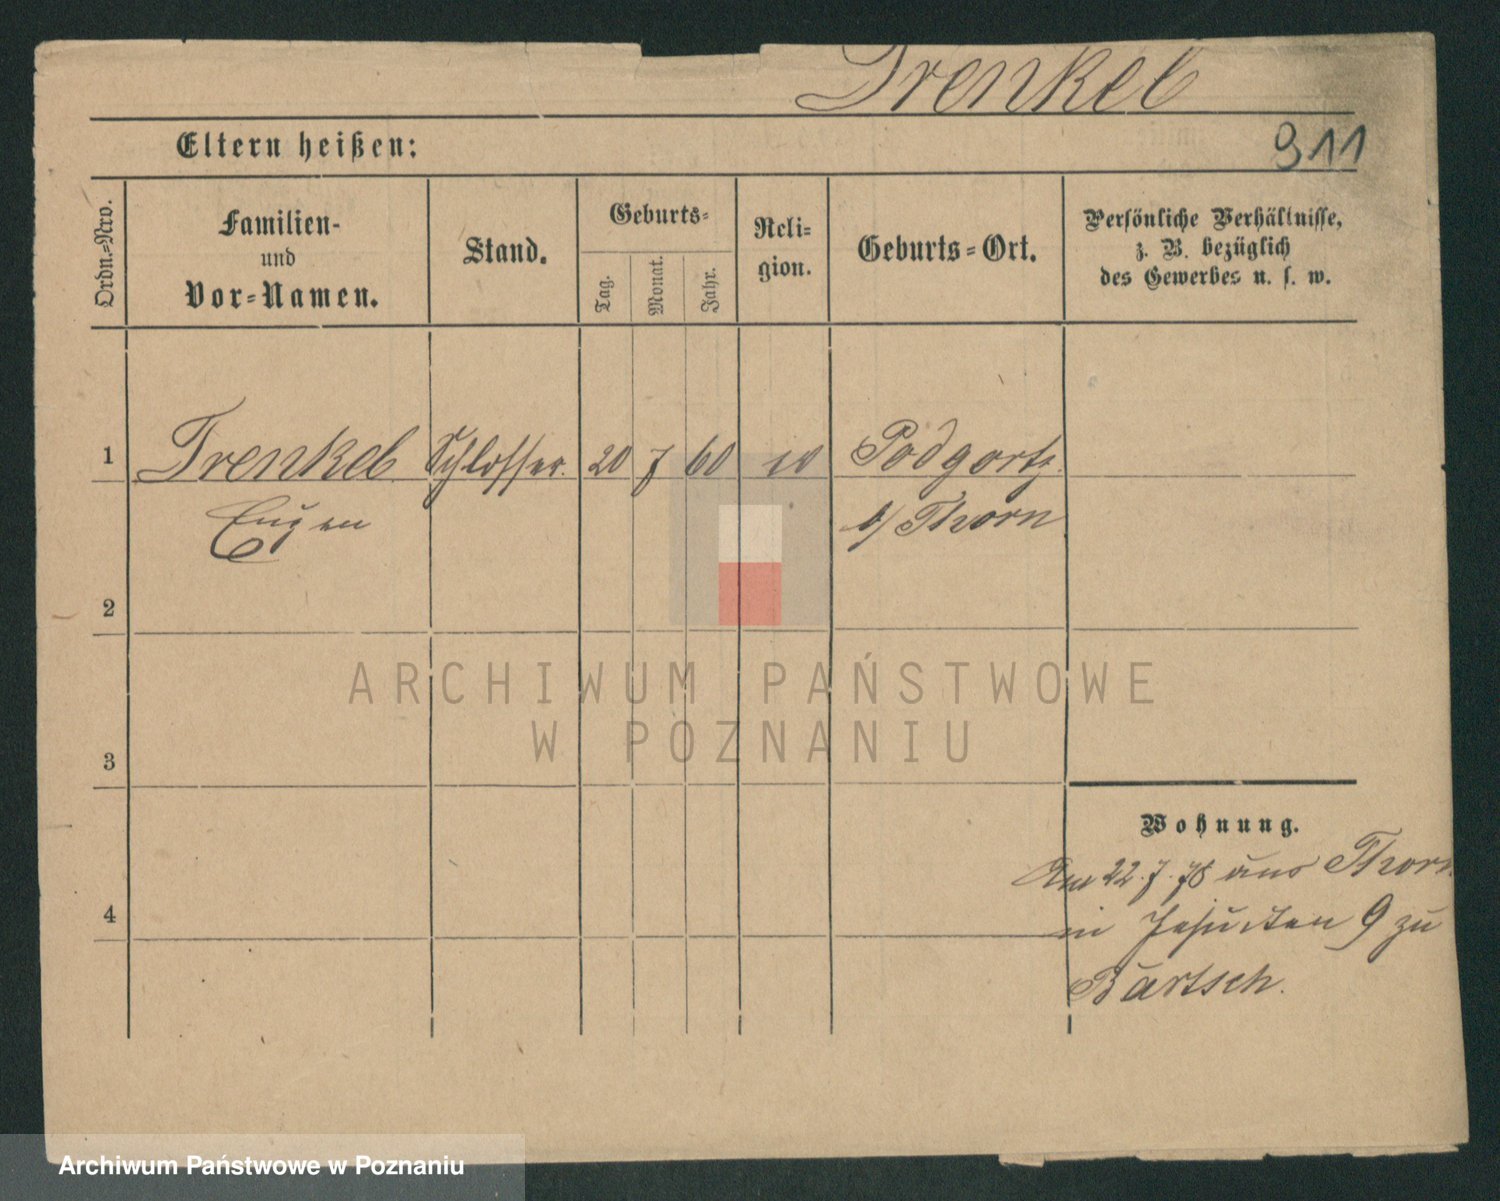 Trenkel
911
Eltern heißen:
Ordn.-Nro.
Familien-
und
Vor-Namen.
Stand.
Geburts-
Tag.
Monat.
Jahr.
Reli-
gion.
Geburts-Ort.
Persönliche Verhältnisse,
z. B. bezüglich
des Gewerbes u. s. w.
1 Trenkel Schlosser. 20 7 60 Podgortz
Eugen b/ Thorn
2
ARCHIWUM PAŃSTWOWE
W POZNANIU
3
Wohnung.
Am 22. 7. 78 aus Thorn
4
in Jesuiten 9 zu
Bartsch.
Archiwum Państwowe w Poznaniu